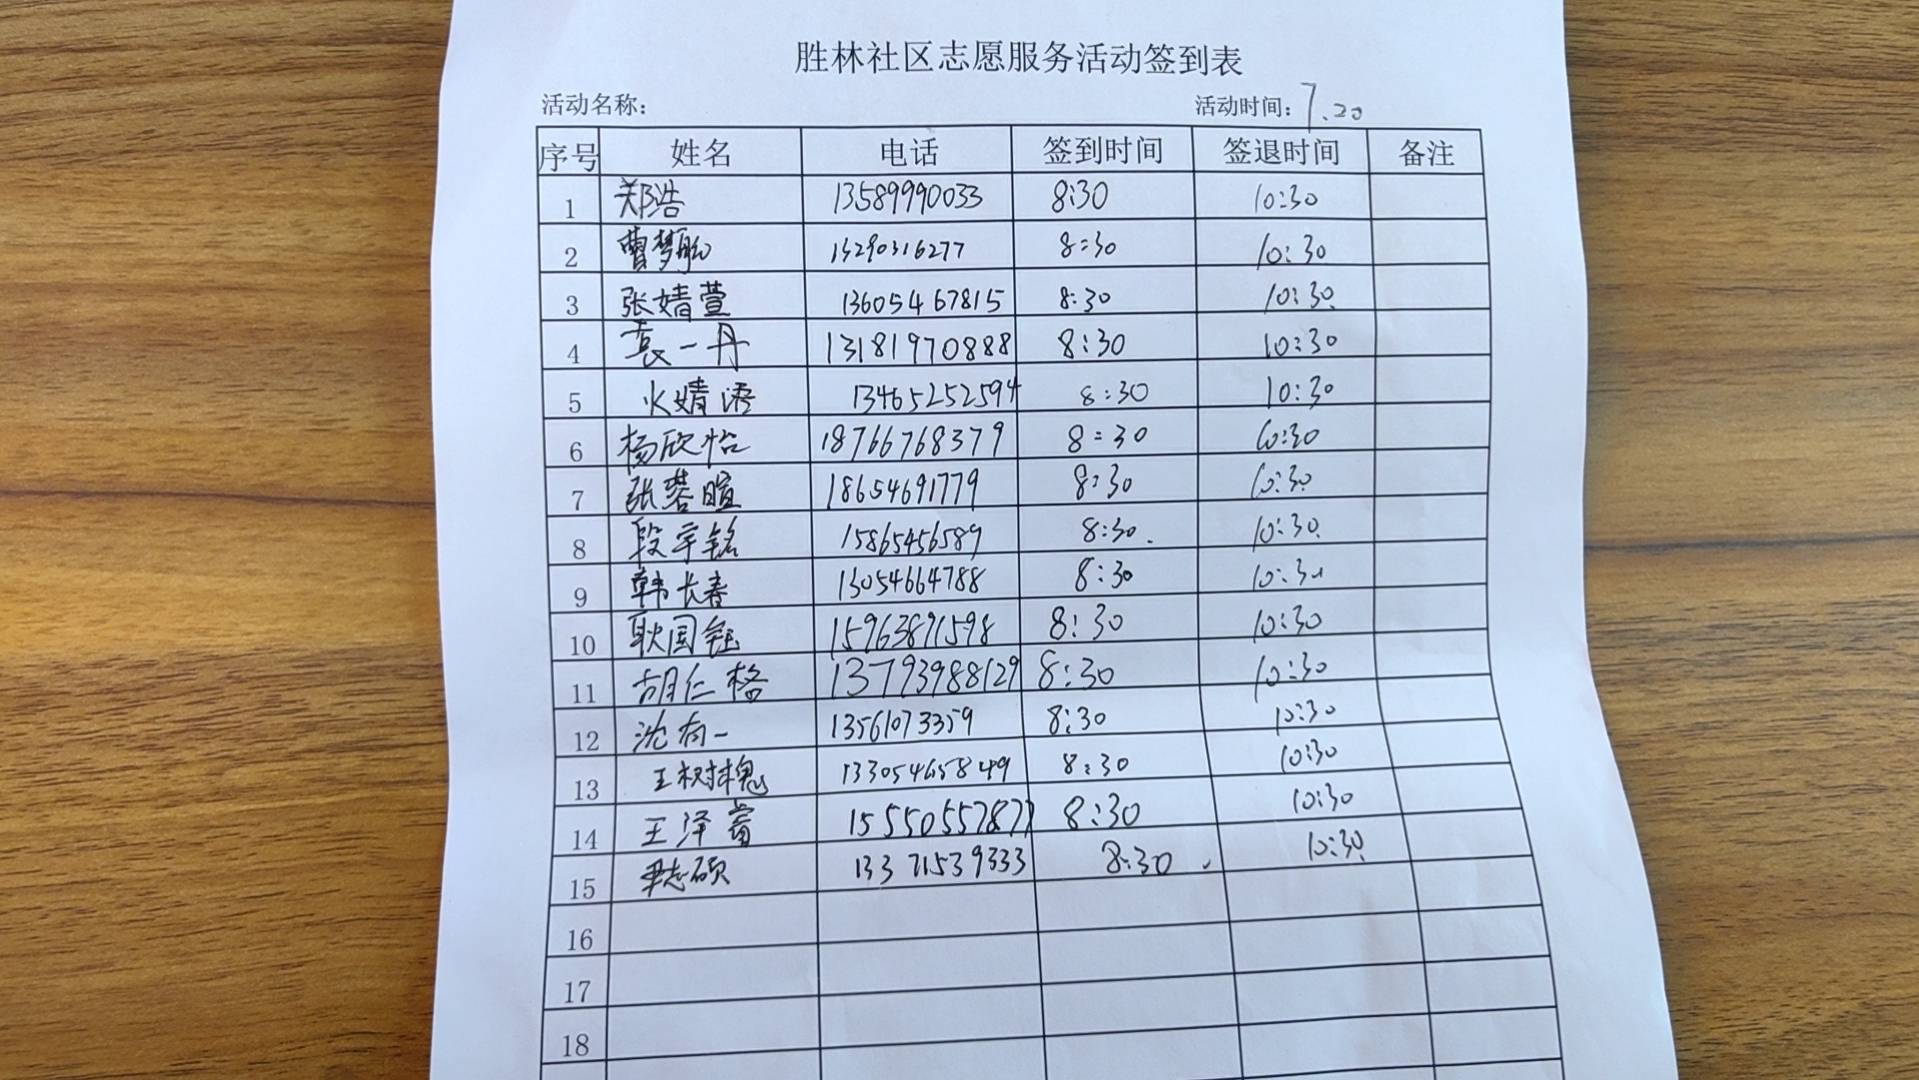 胜林社区志愿服务活动签到表
活动名称: 活动时间: 7.20
序号 姓名 电话 签到时间 签退时间 备注
1 郑浩 13589990033 8:30 10:30
2 曹梦 13290316277 8:30 10:30
3 张婧萱 13605467815 8:30 10:30
4 袁一丹 13181970888 8:30 10:30
5 火婧语 13465252594 8:30 10:30
6 杨欣怡 18766768379 8:30 10:30
7 张蓉暄 18654691779 8:30 10:30
8 段宇铭 15865456589 8:30 10:30
9 韩长春 13054664788 8:30 10:30
10 耿国钰 15963891598 8:30 10:30
11 胡仁格 13793988129 8:30 10:30
12 沈有一 13561073359 8:30 10:30
13 王树槐 13305465849 8:30 10:30
14 王泽 15550557877 8:30 10:30
15 尹志硕 13371539333 8:30 10:30
16
17
18